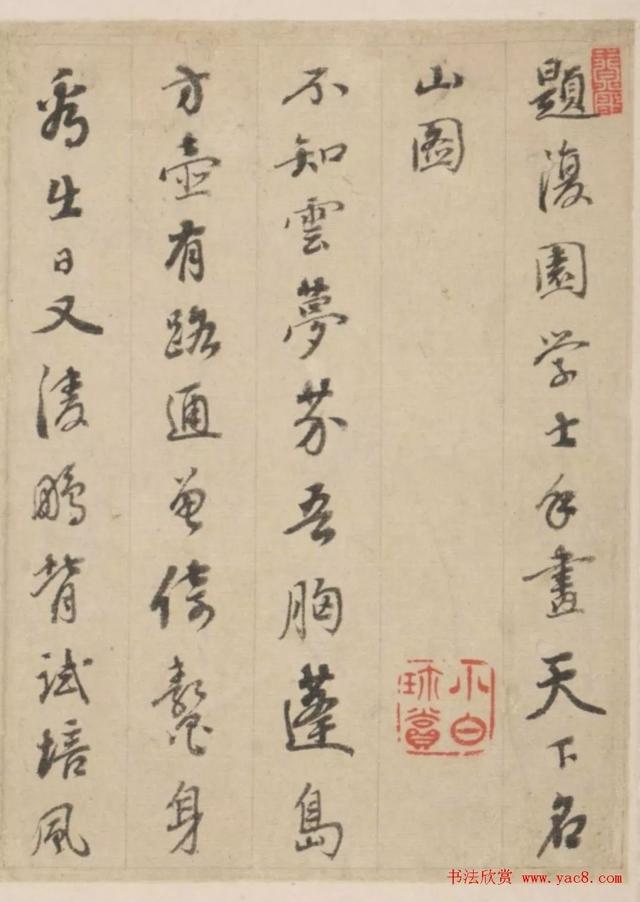 題復園学士手畫天下名
山圖
不知雲夢芥吾胸蓬島
方壺有路通曾倚鼇身
看生日又凌鵬背試培風
珎賞
书法欣赏 www.yac8.com